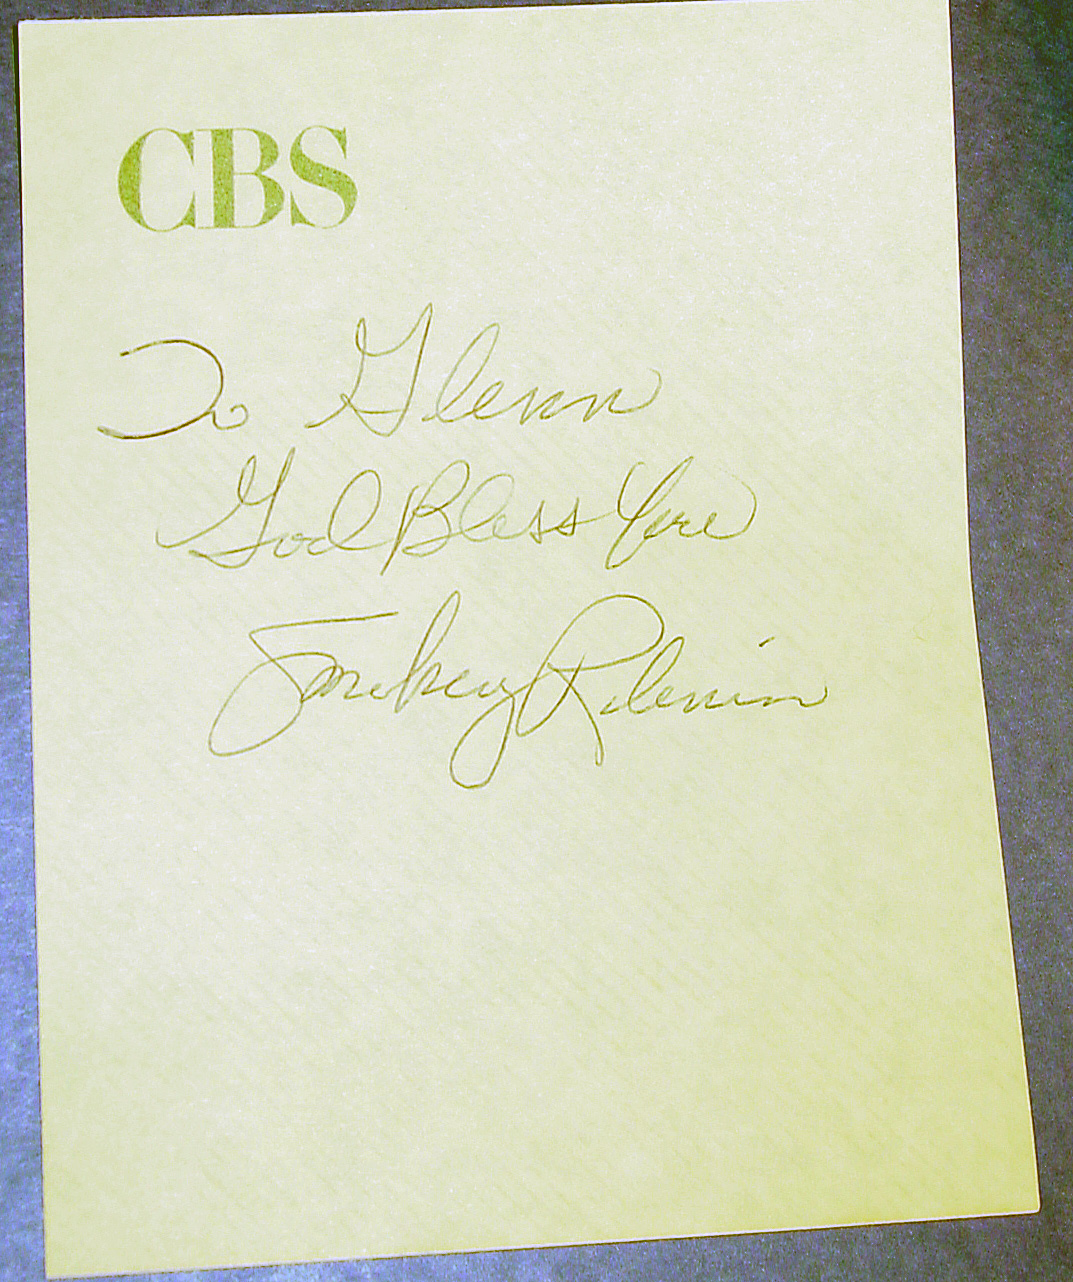 CBS
To Glenn
God Bless You
Smokey Robinson